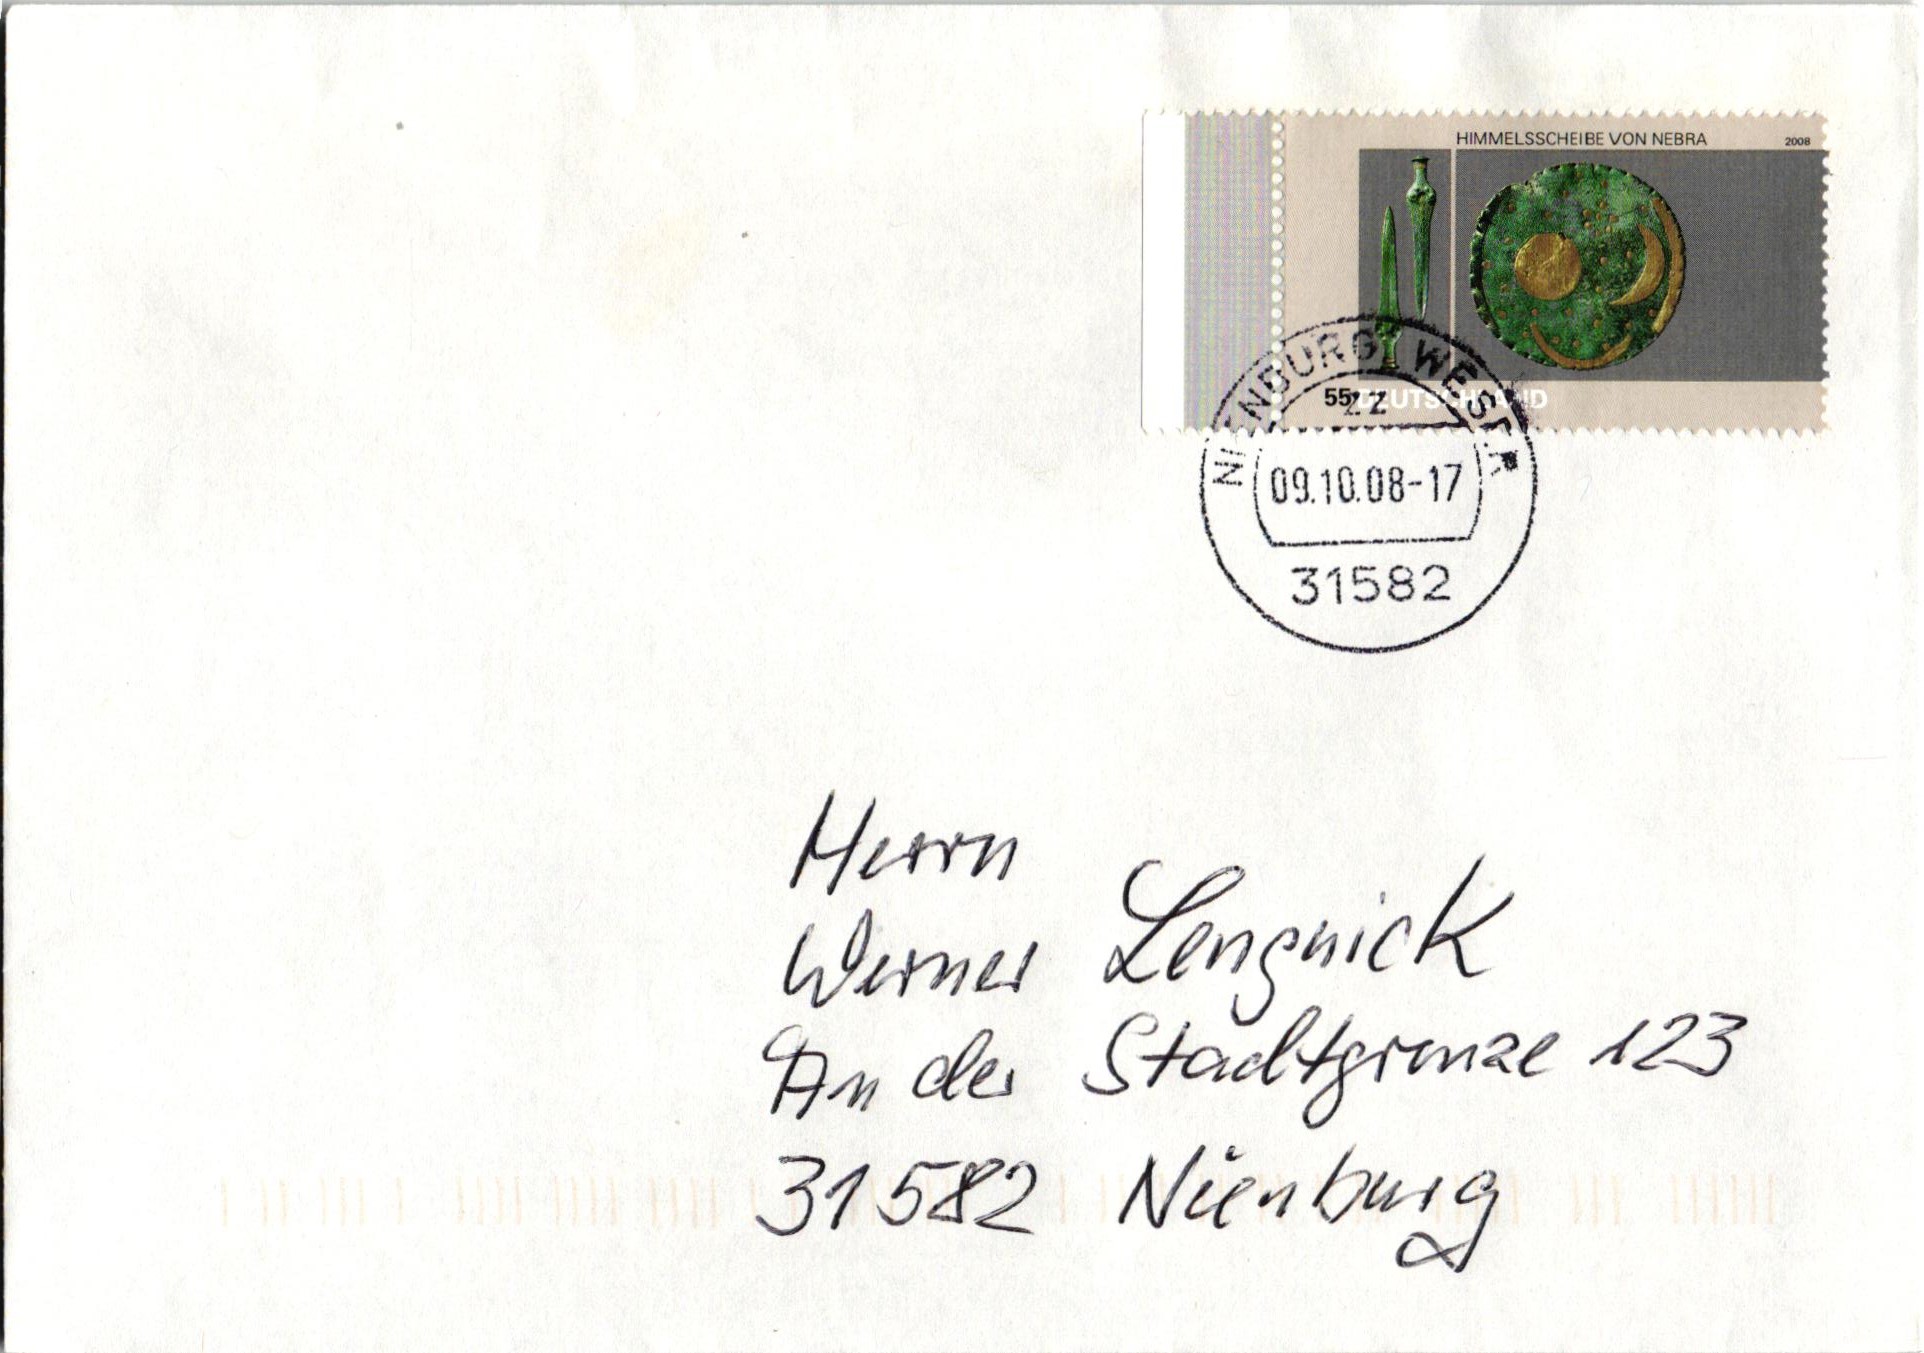 HIMMELSSCHEIBE VON NEBRA 2008
55 DEUTSCHLAND
NIENBURG, WESER
zz
09.10.08-17
31582
Herrn
Werner Lengnick
An der Stadtgrenze 123
31582 Nienburg